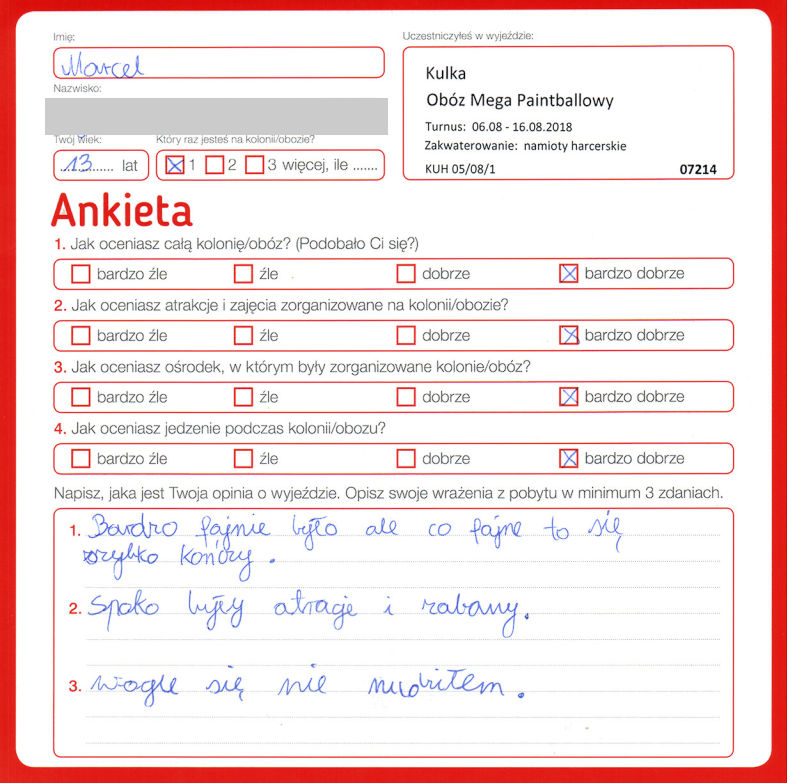 Imię:
Marcel
Nazwisko:
Twój wiek:
13 lat
Który raz jesteś na kolonii/obozie?
1 2 3 więcej, ile .......
Uczestniczyłeś w wyjeździe:
Kulka
Obóz Mega Paintballowy
Turnus: 06.08 - 16.08.2018
Zakwaterowanie: namioty harcerskie
KUH 05/08/1 07214
Ankieta
1. Jak oceniasz całą kolonię/obóz? (Podobało Ci się?)
bardzo źle źle dobrze bardzo dobrze
2. Jak oceniasz atrakcje i zajęcia zorganizowane na kolonii/obozie?
bardzo źle źle dobrze bardzo dobrze
3. Jak oceniasz ośrodek, w którym były zorganizowane kolonie/obóz?
bardzo źle źle dobrze bardzo dobrze
4. Jak oceniasz jedzenie podczas kolonii/obozu?
bardzo źle źle dobrze bardzo dobrze
Napisz, jaka jest Twoja opinia o wyjeździe. Opisz swoje wrażenia z pobytu w minimum 3 zdaniach.
1. Bardzo fajnie było ale co fajne to się
szybko kończy.
2. Spoko były atragje i zabawy.
3. wogle się nie nudziłem.